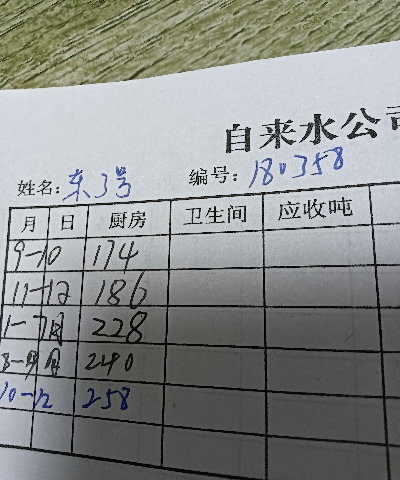 自来水公司
姓名: 东3号 编号: 180358
月 日 厨房 卫生间 应收吨
9-10 174
11-12 186
1-7月 228
8-9月 240
10-12 258